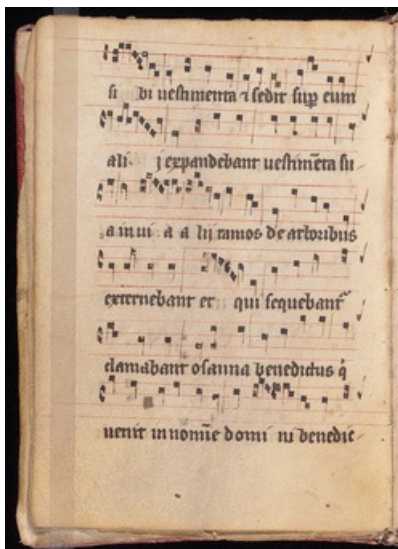 si bi uestimenta ⁊ sedit sup̱ eum
ali j expandebant uestim̄eta su
a in ui a a lij ramos de arboribus
externebant et qui sequebant᷑
clamabant osanna benedictus q̇
uenit in nom̄ie domi ni benedic